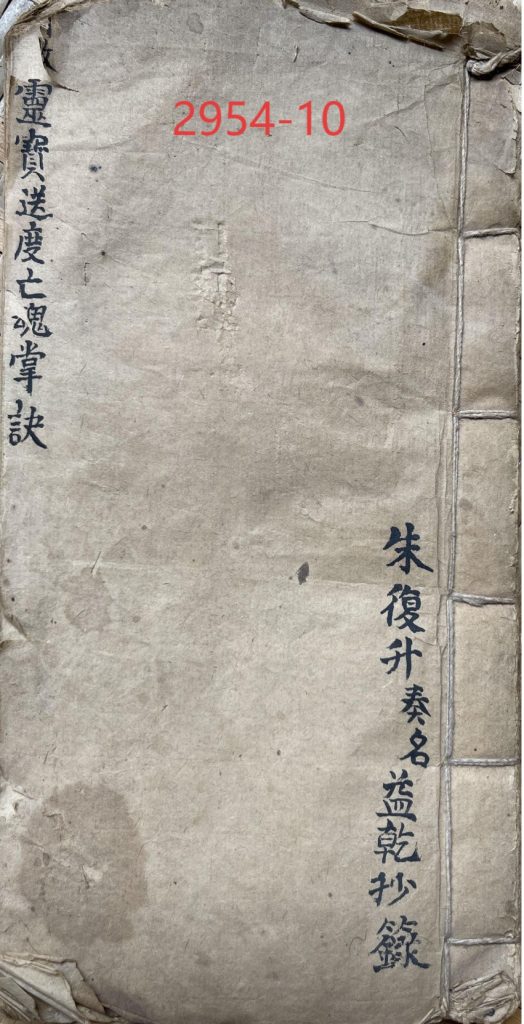 2954-10
朱復升奏名益乾抄籙
靈寶送度亡魂掌訣